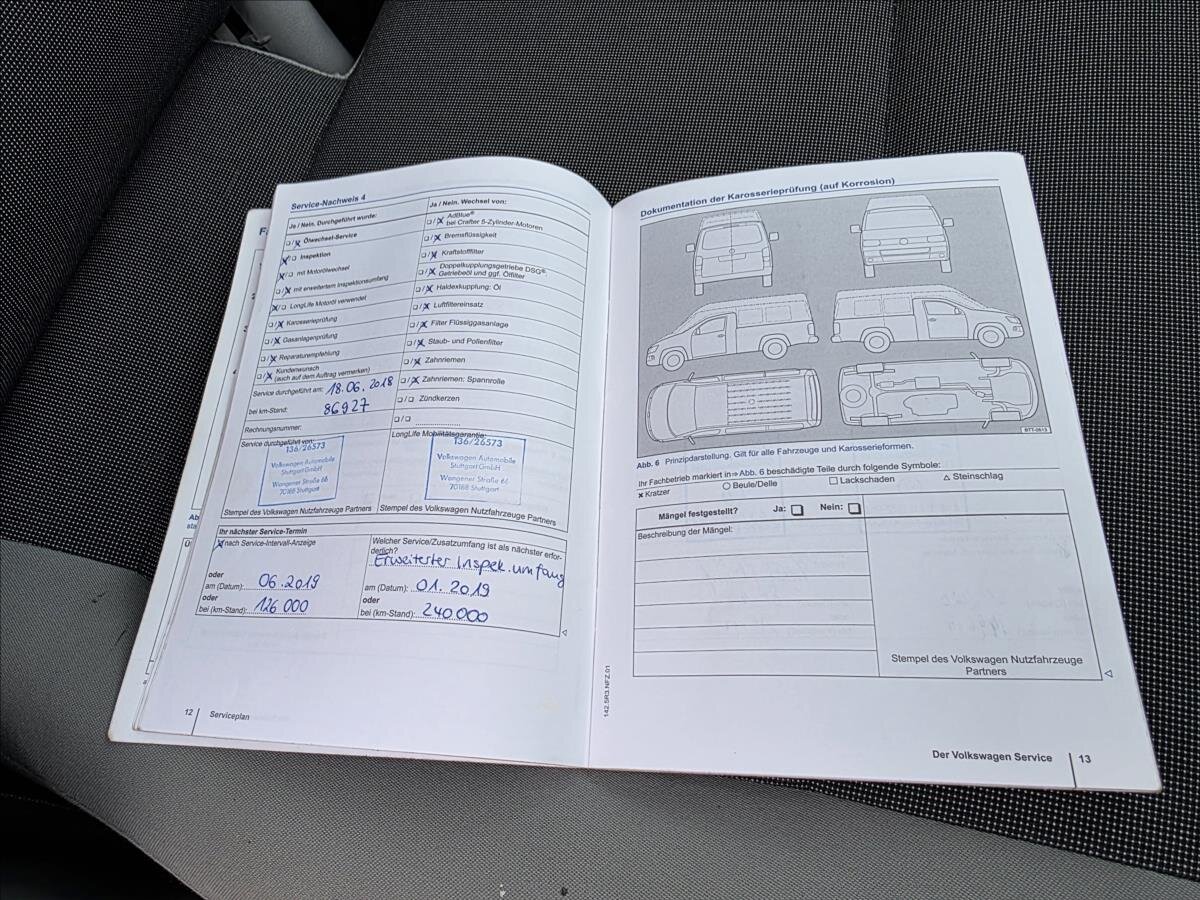 Service-Nachweis 4
Ja / Nein. Durchgeführt wurde:
❏/✗ Ölwechsel-Service
✗/❏ Inspektion
✗/❏ mit Motorölwechsel
❏/✗ mit erweitertem Inspektionsumfang
✗/❏ LongLife Motoröl verwendet
❏/✗ Karosserieprüfung
❏/✗ Gasanlagenprüfung
❏/✗ Reparaturempfehlung
❏/✗ Kundenwunsch
(auch auf dem Auftrag vermerken)
Service durchgeführt am: 18.06.2018
bei km-Stand: 86927
Rechnungsnummer:
Service durchgeführt von:
136/26573
Volkswagen Automobile
Stuttgart GmbH
Wangener Straße 66
70188 Stuttgart
Stempel des Volkswagen Nutzfahrzeuge Partners
Ja / Nein. Wechsel von:
❏/✗ AdBlue®
bei Crafter 5-Zylinder-Motoren
❏/✗ Bremsflüssigkeit
❏/✗ Kraftstofffilter
❏/✗ Doppelkupplungsgetriebe DSG®:
Getriebeöl und ggf. Ölfilter
❏/✗ Haldexkupplung: Öl
❏/✗ Luftfiltereinsatz
❏/✗ Filter Flüssiggasanlage
❏/✗ Staub- und Pollenfilter
❏/✗ Zahnriemen
❏/✗ Zahnriemen: Spannrolle
❏/❏ Zündkerzen
❏/❏ ....................
LongLife Mobilitätsgarantie:
136/26573
Volkswagen Automobile
Stuttgart GmbH
Wangener Straße 66
70188 Stuttgart
Stempel des Volkswagen Nutzfahrzeuge Partners
Ihr nächster Service-Termin
✗ nach Service-Intervall-Anzeige
oder
am (Datum): 06.2019
oder
bei (km-Stand): 126 000
Welcher Service/Zusatzumfang ist als nächster erfor-
derlich?
Erweiterter Inspek.umfang
am (Datum): 01.2019
oder
bei (km-Stand): 240.000
12 Serviceplan
Dokumentation der Karosserieprüfung (auf Korrosion)
BTT-0613
Abb. 6 Prinzipdarstellung. Gilt für alle Fahrzeuge und Karosserieformen.
Ihr Fachbetrieb markiert in ⇒ Abb. 6 beschädigte Teile durch folgende Symbole:
✗ Kratzer ○ Beule/Delle □ Lackschaden △ Steinschlag
Mängel festgestellt? Ja: ❏ Nein: ❏
Beschreibung der Mängel:
Stempel des Volkswagen Nutzfahrzeuge
Partners
142.5R3.NFZ.01
Der Volkswagen Service 13